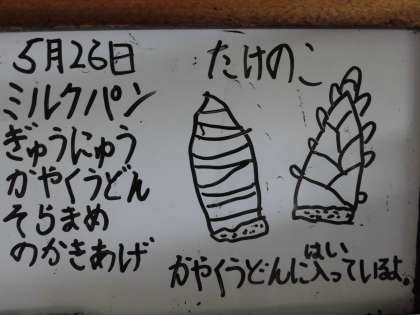 5月26日
ミルクパン
ぎゅうにゅう
かやくうどん
そらまめ
のかきあげ
たけのこ
はい
かやくうどんに入っているよ。